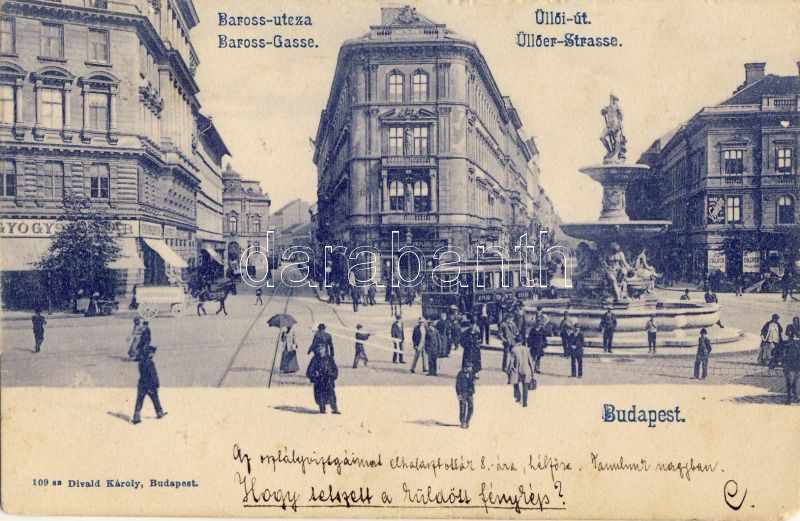 Baross-utcza
Baross-Gasse.
Üllői-út.
Üllőer-Strasse.
GYÓGYSZ AR
darabanth.com
Budapest.
Az osztályvizsgáimat elhalasztották 8.-ára, hétfőre. Tanulunk nagyban.
Hogy tetszett a küldött fénykép?
109 sz Divald Károly, Budapest.
C.